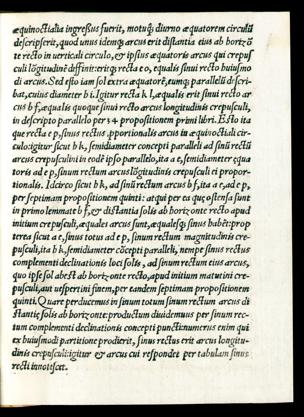 æquinoctialia ingressus fuerit, motuq; diurno æquatorem circulū
descripserit, quod unus idemq; arcus erit distantia eius ab horizō
te recto in uerticali circulo, & ipsius æquatoris arcus qui crepus
culi lōgitudinē diffinit: eritq; recta e o, equalis sinui recto huiusmo
di arcus. Sed esto iam sol extra æquatorē, eumq; paralleli descri-
bat, cuius diameter h i. Igitur recta k l, æqualis erit sinui recto ar
cus b f, æqualis quoque sinui recto arcus longitudinis crepusculi,
in descripto parallelo per 34 propositionem primi libri. Est o ita
que recta e p, sinus rectus, proportionalis arcus in æquinoctiali cir-
culo: igitur sicut h k, semidiameter concepti paralleli ad sinū rectū
arcus crepusculini in eodē ipso parallelo, ita a e, semidiameter æqua
toris ad e p, sinum rectum arcus lōgitudinis crepusculi ei propor-
tionalis. Idcirco sicut h k, ad sinū rectum arcus b f, ita a e, ad e p,
per septimam propositionem quinti: atqui per ea quæ ostensa sunt
in primo lemmate b f, & distantia solis ab horizonte recto apud
initium crepusculi, æquales arcus sunt, æqualesq; sinus habēt: prop
terea sicut a e, sinus totus ad e p, sinum rectum magnitudinis cre-
pusculi, ita h k, semidiameter cōcepti paralleli, nempe sinus rectus
complementi declinationis loci solis, ad sinum rectum eius arcus,
quo ipse sol abest ab horizonte recto, apud initium matutini cre-
pusculi, aut uespertini finem, per eandem septimam propositionem
quinti. Quare perducemus in sinum totum sinum rectum arcus di
stantiæ solis ab horizonte: productum diuidemus per sinum rec-
tum complementi declinationis concepti puncti: numerus enim qui
ex huiusmodi partitione prodierit, sinus rectus erit arcus longitu-
dinis crepusculi: igitur & arcus cui respondet per tabulam sinus
recti innotescet.